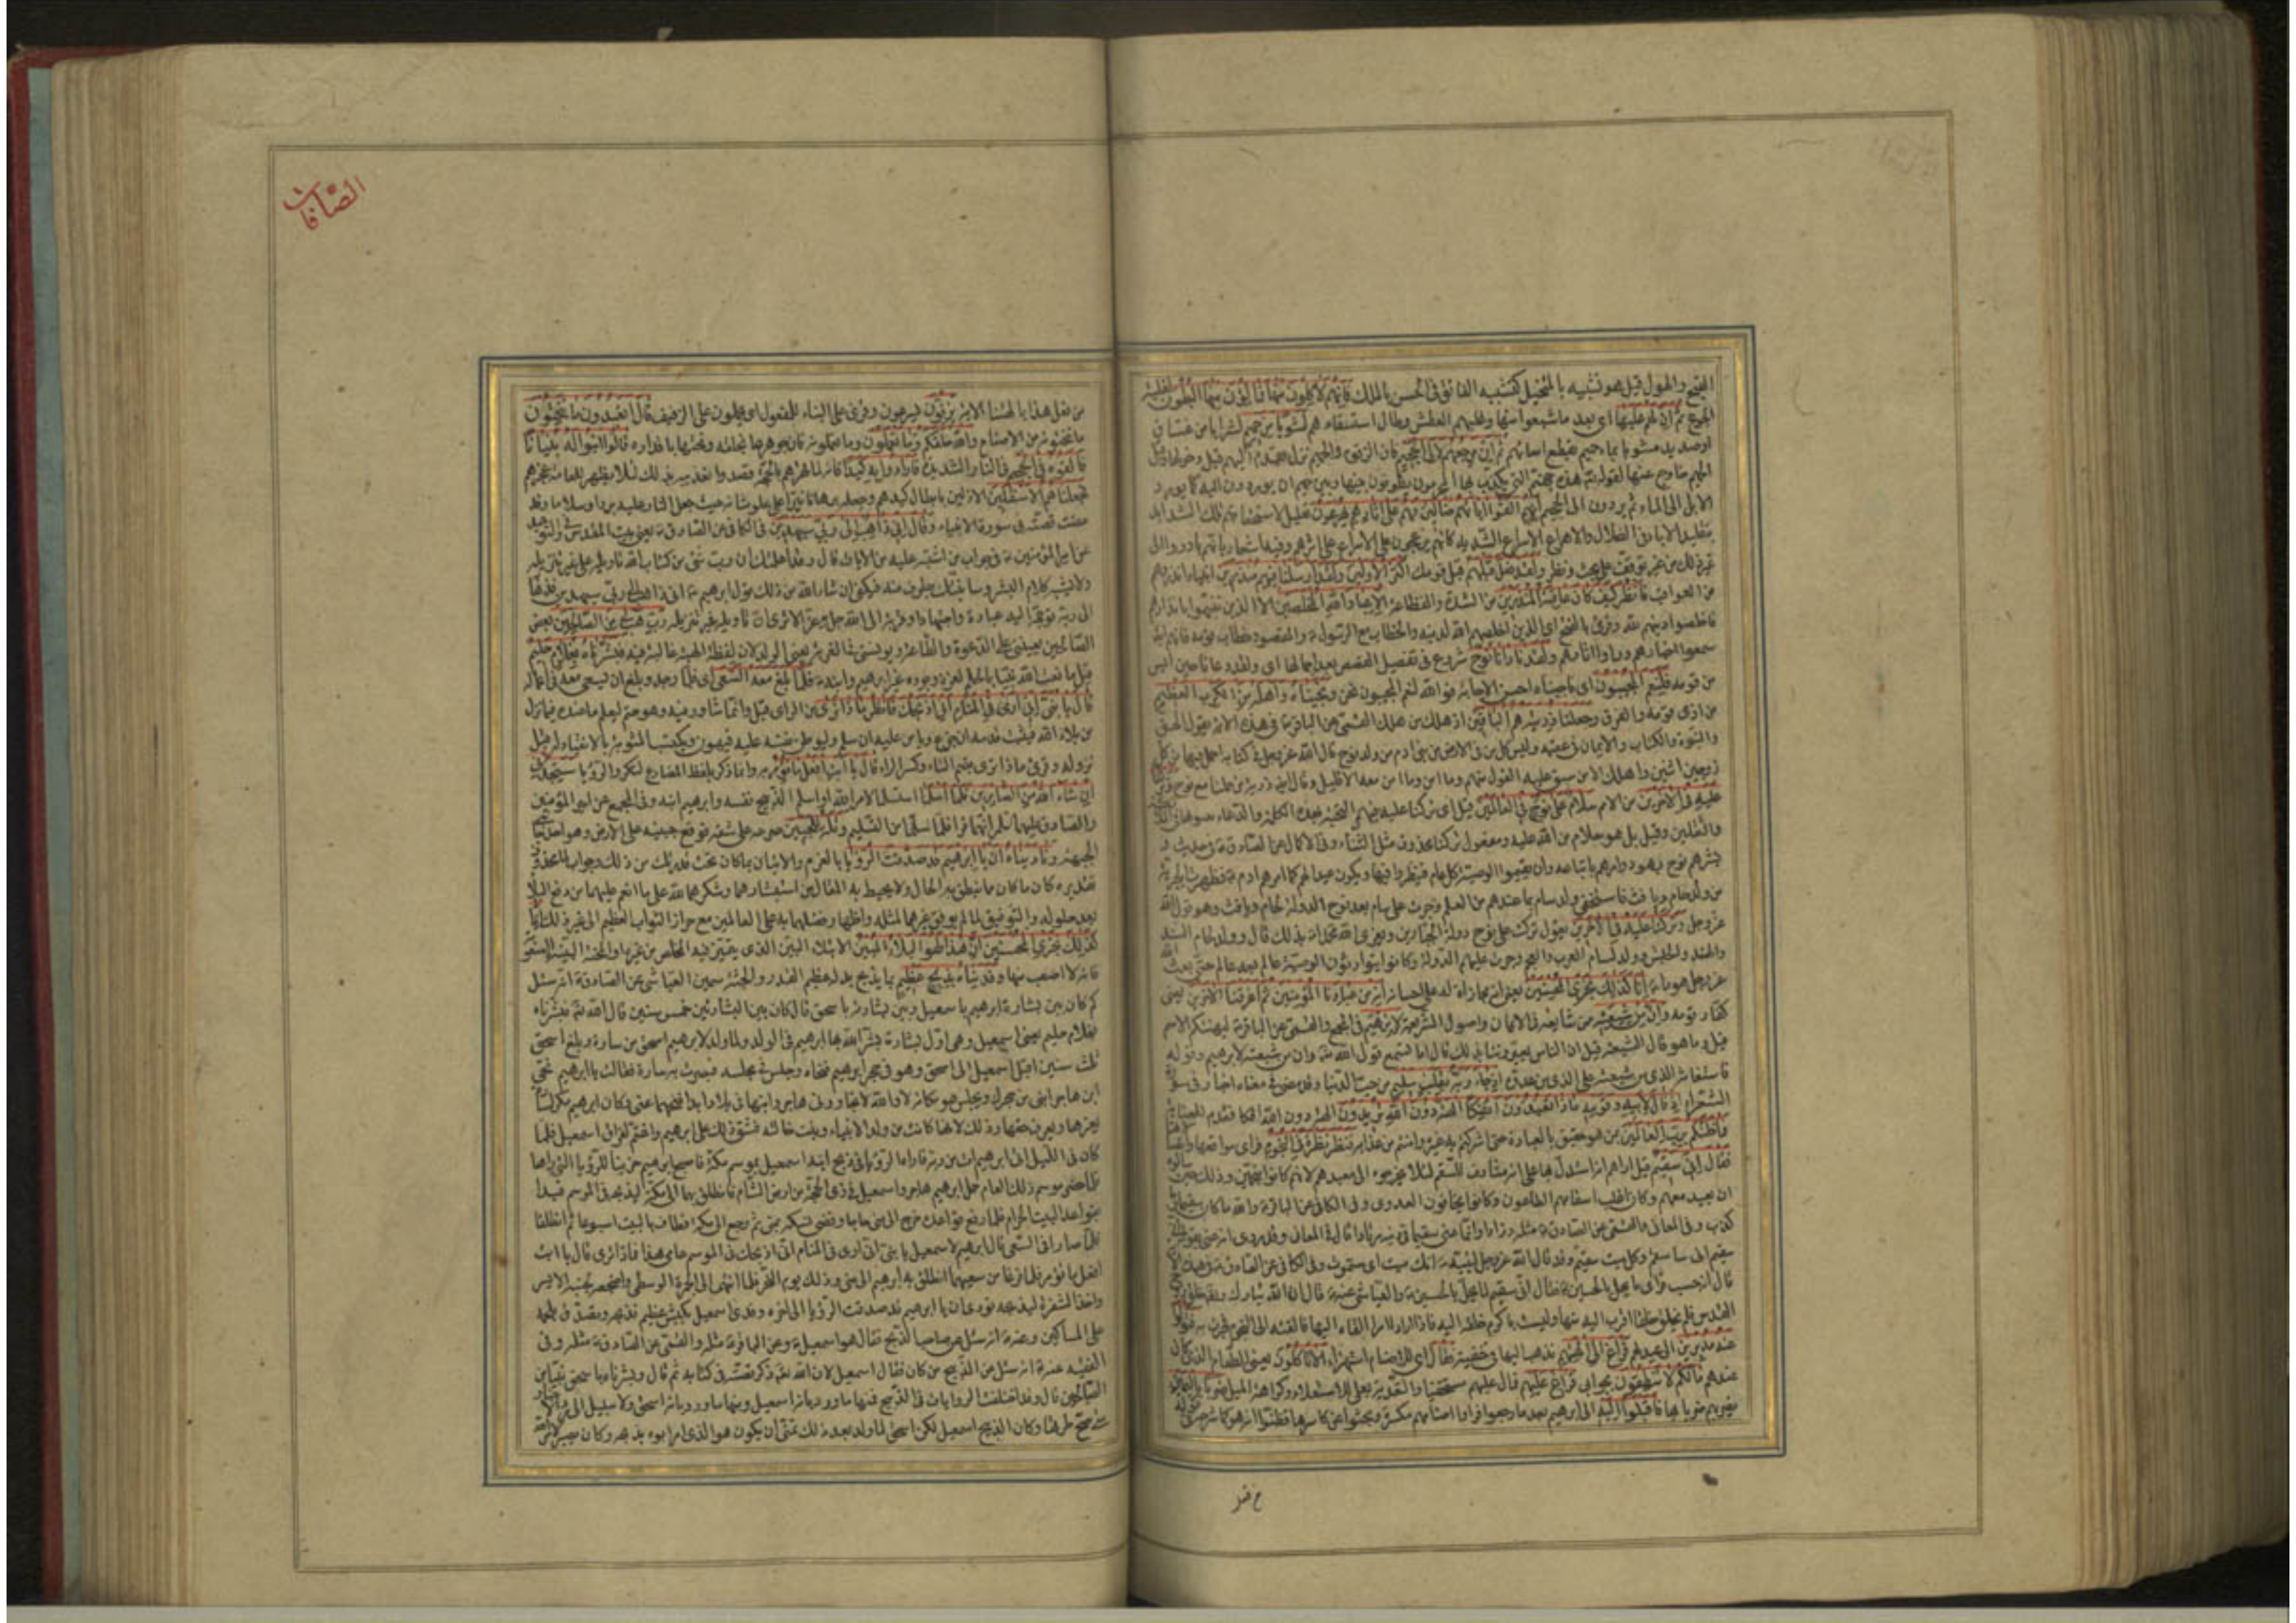 القبح والهول قيل هو تشبيه بالمتخيل كتشبيه الفائق في الحسن بالملك فانهم لآكلون منها فمالؤن منها البطون لغلبة
الجوع ثم ان لهم عليها اى بعد ما شبعوا منها وغلبهم العطش وطال استسقاءهم لشوبا من حميم لشرابا من غساق
او صديد مشوبا بماء حميم يقطع امعائهم ثم ان مرجعهم لالى الجحيم فان الزقوم والحميم نزل يقدم اليهم قبل دخولها وقيل
الحميم خارج عنها لقوله تع هذه جهنم التى يكذب بها المجرمون يطوفون بينها وبين حميم ان يوردون اليه كما يورد
الابل الى الماء ثم يردون الى الجحيم انهم الفوا اباءهم ضالين فهم على اثارهم يهرعون تعليل لاستحقاقهم تلك الشدايد
بتقليد الاباء فى الضلال والاهراع الاسراع الشديد كانهم يزعجون على الاسراع على اثرهم وفيه اشعار بانهم بادروا الى
ذلك من غير توقف على بحث ونظر ولقد ضل قبلهم قبل قومك اكثر الاولين ولقد ارسلنا فيهم منذرين انبياء انذروهم
من العواقب فانظر كيف كان عاقبة المنذرين من الشدة والفظاعة الا عباد الله المخلصين الا الذين تنبهوا بانذارهم
فاخلصوا دينهم لله وقرئ بالفتح اى الذين اخلصهم الله لدينه والخطاب مع الرسول والمقصود خطاب قومه فانهم ايضا
سمعوا اخبارهم وراوا اثارهم ولقد نادانا نوح شروع فى تفصيل القصص بعد اجمالها اى ولقد دعانا حين ايس
من قومه فلنعم المجيبون اى فاجبناه احسن الاجابة فوالله لنعم المجيبون نحن ونجيناه واهله من الكرب العظيم
من اذى قومه والغرق وجعلنا ذريته هم الباقين اذ هلك من هلك القمى عن الباقر فى هذه الاية يقول الحق
والنبوة والكتاب والايمان فى عقبه وليس كل من فى الارض من بنى ادم من ولد نوح قال الله عز وجل فى كتابه احمل فيها من كل
زوجين اثنين واهلك الا من سبق عليه القول منهم ومن امن وما امن معه الا قليل وقال ايضا ذرية من حملنا مع نوح وتركنا
عليه فى الاخرين من الامم سلام على نوح فى العالمين قيل اى تركنا عليه
والثقلين وقيل بل هو سلام من الله عليه ومفعول تركنا محذوف مثل الثناء وفى الاكمال عن الصادق فى حديث و
بشرهم نوح بهود وامرهم باتباعه وان يقيموا الوصية كل عام فينظروا فيها ويكون عيدا لهم كما امرهم ادم فظهرت الجبرية
من ولد حام ويافث فاستخفى ولد سام بما عندهم من العلم وجرت على سام بعد نوح الدولة لحام ويافث وهو قول الله
عز وجل وتركنا عليه فى الاخرين يقول تركت على نوح دولة الجبارين ويعزى الله محمدا بذلك قال وولد لحام السند
والهند والحبش وولد لسام العرب والعجم وجرت عليهم الدولة وكانوا يتوارثون الوصية عالم بعد عالم حتى بعث الله
عز وجل هودا انا كذلك نجزى المحسنين
كفار قومه وان من شيعته ممن شايعه فى الايمان واصول الشريعة لابرهيم فى المجمع والقمى عن الباقر ليهنئكم الاسم
قيل وما هو قال الشيعة قيل ان الناس يعيروننا بذلك قال اما تسمع قول الله تع وان من شيعته لابرهيم وقوله
فاستغاثه الذى من شيعته على الذى من عدوه اذ جاء ربه بقلب سليم من حب الدنيا وقد مضى فى معناه اخبار فى سورة
الشعراء اذ قال لابيه وقومه ماذا تعبدون ائفكا الهة دون الله تريدون
فما ظنكم برب العالمين بمن هو حقيق بالعبادة حتى اشركتم به غيره وامنتم من عذابه فنظر نظرة فى النجوم فراى مواقعها
فقال انى سقيم قيل اراهم انه استدل بها على انه مشارف للسقم لئلا يخرجوه الى معبدهم لانهم كانوا منجمين وذلك حين سالوه
ان يعيد معهم وكان اغلب اسقامهم الطاعون وكانوا يخافون العدوى وفى الكافى عن الباقر والله ما كان سقيما وما
كذب وفى المعانى والقمى عن الصادق مثله وزاد وانما عنى سقيما فى دينه مرتادا قال فى المعانى وقد روى انه عنى بقوله
سقيم اى ساسقم وكل ميت سقيم وقد قال الله عز وجل لنبيه انك ميت اى ستموت وفى الكافى عن الصادق
قال انه حسب فراى ما يحل بالحسين فقال انى سقيم لما يحل بالحسين والعياشى عنه قال ان الله تبارك وتعالى خلق روح
القدس فلم يخلق خلقا اقرب اليه منها وليست باكرم خلقه عليه فاذا اراد امرا القاه اليها فالقته الى النجوم فجرت به فتولوا
عنه مدبرين الى عيدهم فراغ الى الهتهم فذهب اليها فى خفية فقال اى للاصنام استهزاء الا تاكلون يعنى الطعام الذى كان
عندهم ما لكم لا تنطقون بجوابى فراغ عليهم فمال عليهم مستخفيا والتعدية بعلى للاستعلاء وكراهة الميل ضربا باليمين
يضربهم ضربا بها فاقبلوا اليه الى ابرهيم بعد ما رجعوا فراوا اصنامهم مكسرة وبحثوا عن كاسرها فظنوا انه هو كما شرحه فى قوله
الصافات
من فعل هذا بالهتنا الاية يزفون يسرعون وقرئ على البناء للمفعول اى يحملون على الزفيف قال اتعبدون ما تنحتون
ما تنحتونه من الاصنام والله خلقكم وما تعملون وما تعملونه فان جوهرها بخلقه ونحتها باقداره قالوا ابنوا له بنيانا
فالقوه فى الجحيم فى النار الشديدة فارادوا به كيدا فانه لما قهرهم بالحجة قصدوا تعذيبه بذلك لئلا يظهر للعامة عجزهم
فجعلناهم الاسفلين الاذلين بابطال كيدهم وجعله برهانا نيرا على علو شانه حيث جعل النار عليه بردا وسلاما وقد
مضت قصته فى سورة الانبياء وقال انى ذاهب الى ربى سيهدين فى الكافى عن الصادق يعنى بيت المقدس وفى التوحيد
عن امير المؤمنين فى جواب من اشتبه عليه من الايات قال وقد اعلمتك ان رب شئ من كتاب الله تاويله على غير تنزيله
ولا يشبه كلام البشر وسانبئك بطرف منه فتكتفى ان شاء الله من ذلك قول ابرهيم انى ذاهب الى ربى سيهدين فذهابه
الى ربه توجهه اليه عبادة واجتهادا وقربة الى الله جل وعز الا ترى ان تاويله غير تنزيله رب هب لى من الصالحين بعض
الصالحين يعيننى على الدعوة والطاعة ويونسنى فى الغربة يعنى الولد لان لفظة الهبة غالبة فيه فبشرناه بغلام حليم
قيل ما نعت الله نبيا بالحلم لعزة وجوده غير ابرهيم وابنه فلما بلغ معه السعى اى فلما وجد وبلغ ان يسعى معه فى اعماله
قال يا بنى انى ارى فى المنام انى اذبحك فانظر ماذا ترى من الراى قيل وانما شاوره فيه وهو حتم ليعلم ما عنده فيما نزل
من بلاء الله فيثبت قدمه ان جزع ويامن عليه ان سلم وليوطن نفسه عليه فيهون ويكتسب المثوبة بالانقياد له قبل
نزوله وقرئ ماذا ترى بضم التاء وكسر الراء قال يا ابت افعل ما تؤمر به وانما ذكر بلفظ المضارع لتكرر الرؤيا ستجدنى
ان شاء الله من الصابرين فلما اسلما استسلما لامر الله او اسلم الذبيح نفسه وابرهيم ابنه وفى المجمع عن امير المؤمنين
والصادق عليهما السلام انهما قرءا فلما سلما من التسليم وتله للجبين صرعه على شقه فوقع جبينه على الارض وهو احد جانبى
الجبهة وناديناه ان يا ابرهيم قد صدقت الرؤيا بالعزم والاتيان بما كان تحت قدرتك من ذلك وجواب لما محذوف
تقديره كان ما كان مما ينطق به الحال ولا يحيط به المقال من استبشارهما وشكرهما لله على ما انعم عليهما من دفع البلاء
بعد حلوله والتوفيق لما لم يوفق غيرهما لمثله واظهار فضلهما به على العالمين مع احراز الثواب العظيم الى غير ذلك انا
كذلك نجزى المحسنين ان هذا لهو البلاء المبين الابتلاء البين الذى يتميز فيه المخلص من غيره او المحنة البينة الصعوبة
فانه لا اصعب منها وفديناه بذبح عظيم بما يذبح بدله عظيم القدر او الجثة سمين العياشى عن الصادق انه سئل
كم كان بين بشارة ابرهيم باسمعيل وبين بشارته باسحق قال كان بين البشارتين خمس سنين قال الله تع فبشرناه
بغلام حليم يعنى اسمعيل وهى اول بشارة بشر الله بها ابرهيم فى الولد ولما ولد لابرهيم اسحق من سارة وبلغ اسحق
ثلث سنين اقبل اسمعيل الى اسحق وهو فى حجر ابرهيم فنحاه وجلس فى مجلسه فبصرت به سارة فقالت يا ابرهيم ينحى
ابن هاجر ابنى من حجرك ويجلس هو مكانه لا والله لا تجاورنى هاجر وابنها فى بلاد ابدا فنحهما عنى وكان ابرهيم مكرما لسارة
يعزها ويعرف حقها وذلك لانها كانت من ولد الانبياء وبنت خالته فشق ذلك على ابرهيم واغتم لفراق اسمعيل فلما
كان فى الليل اتى ابرهيم ات من ربه فاراه الرؤيا فى ذبح ابنه اسمعيل بموسم مكة فاصبح ابرهيم حزينا للرؤيا التى راها
فلما حضر موسم ذلك العام حمل ابرهيم هاجر واسمعيل فى ذى الحجة من ارض الشام فانطلق بهما الى مكة ليذبحه فى الموسم فبدا
بقواعد البيت الحرام فلما رفع قواعده خرج الى منى حاجا وقضى نسكه بمنى ثم رجع الى مكة فطاف بالبيت اسبوعا ثم انطلقا
فلما صارا فى السعى قال ابرهيم لاسمعيل يا بنى انى ارى فى المنام انى اذبحك فى الموسم عامى هذا فماذا ترى قال يا ابت
افعل ما تؤمر فلما فرغا من سعيهما انطلق به ابرهيم الى منى وذلك يوم النحر فلما انتهى الى الجمرة الوسطى واضجعه لجنبه الايسر
واخذ الشفرة ليذبحه نودى ان يا ابرهيم قد صدقت الرؤيا الى اخره وفدى اسمعيل بكبش عظيم فذبحه وتصدق بلحمه
على المساكين وعنه انه سئل عن صاحب الذبح فقال هو اسمعيل وعن الباقر مثله والقمى عن الصادق مثله وفى
الفقيه عنه انه سئل عن الذبيح من كان فقال اسمعيل لان الله تع ذكر قصته فى كتابه ثم قال وبشرناه باسحق نبيا من
الصالحين قال وقد اختلفت الروايات فى الذبيح فمنها ما ورد بانه اسمعيل ومنها ما ورد بانه اسحق ولا سبيل الى رد الاخبار
متى صح طرقها وكان الذبيح اسمعيل لكن اسحق لما ولد بعد ذلك تمنى ان يكون هو الذى امر ابوه بذبحه وكان يصبر لامر الله